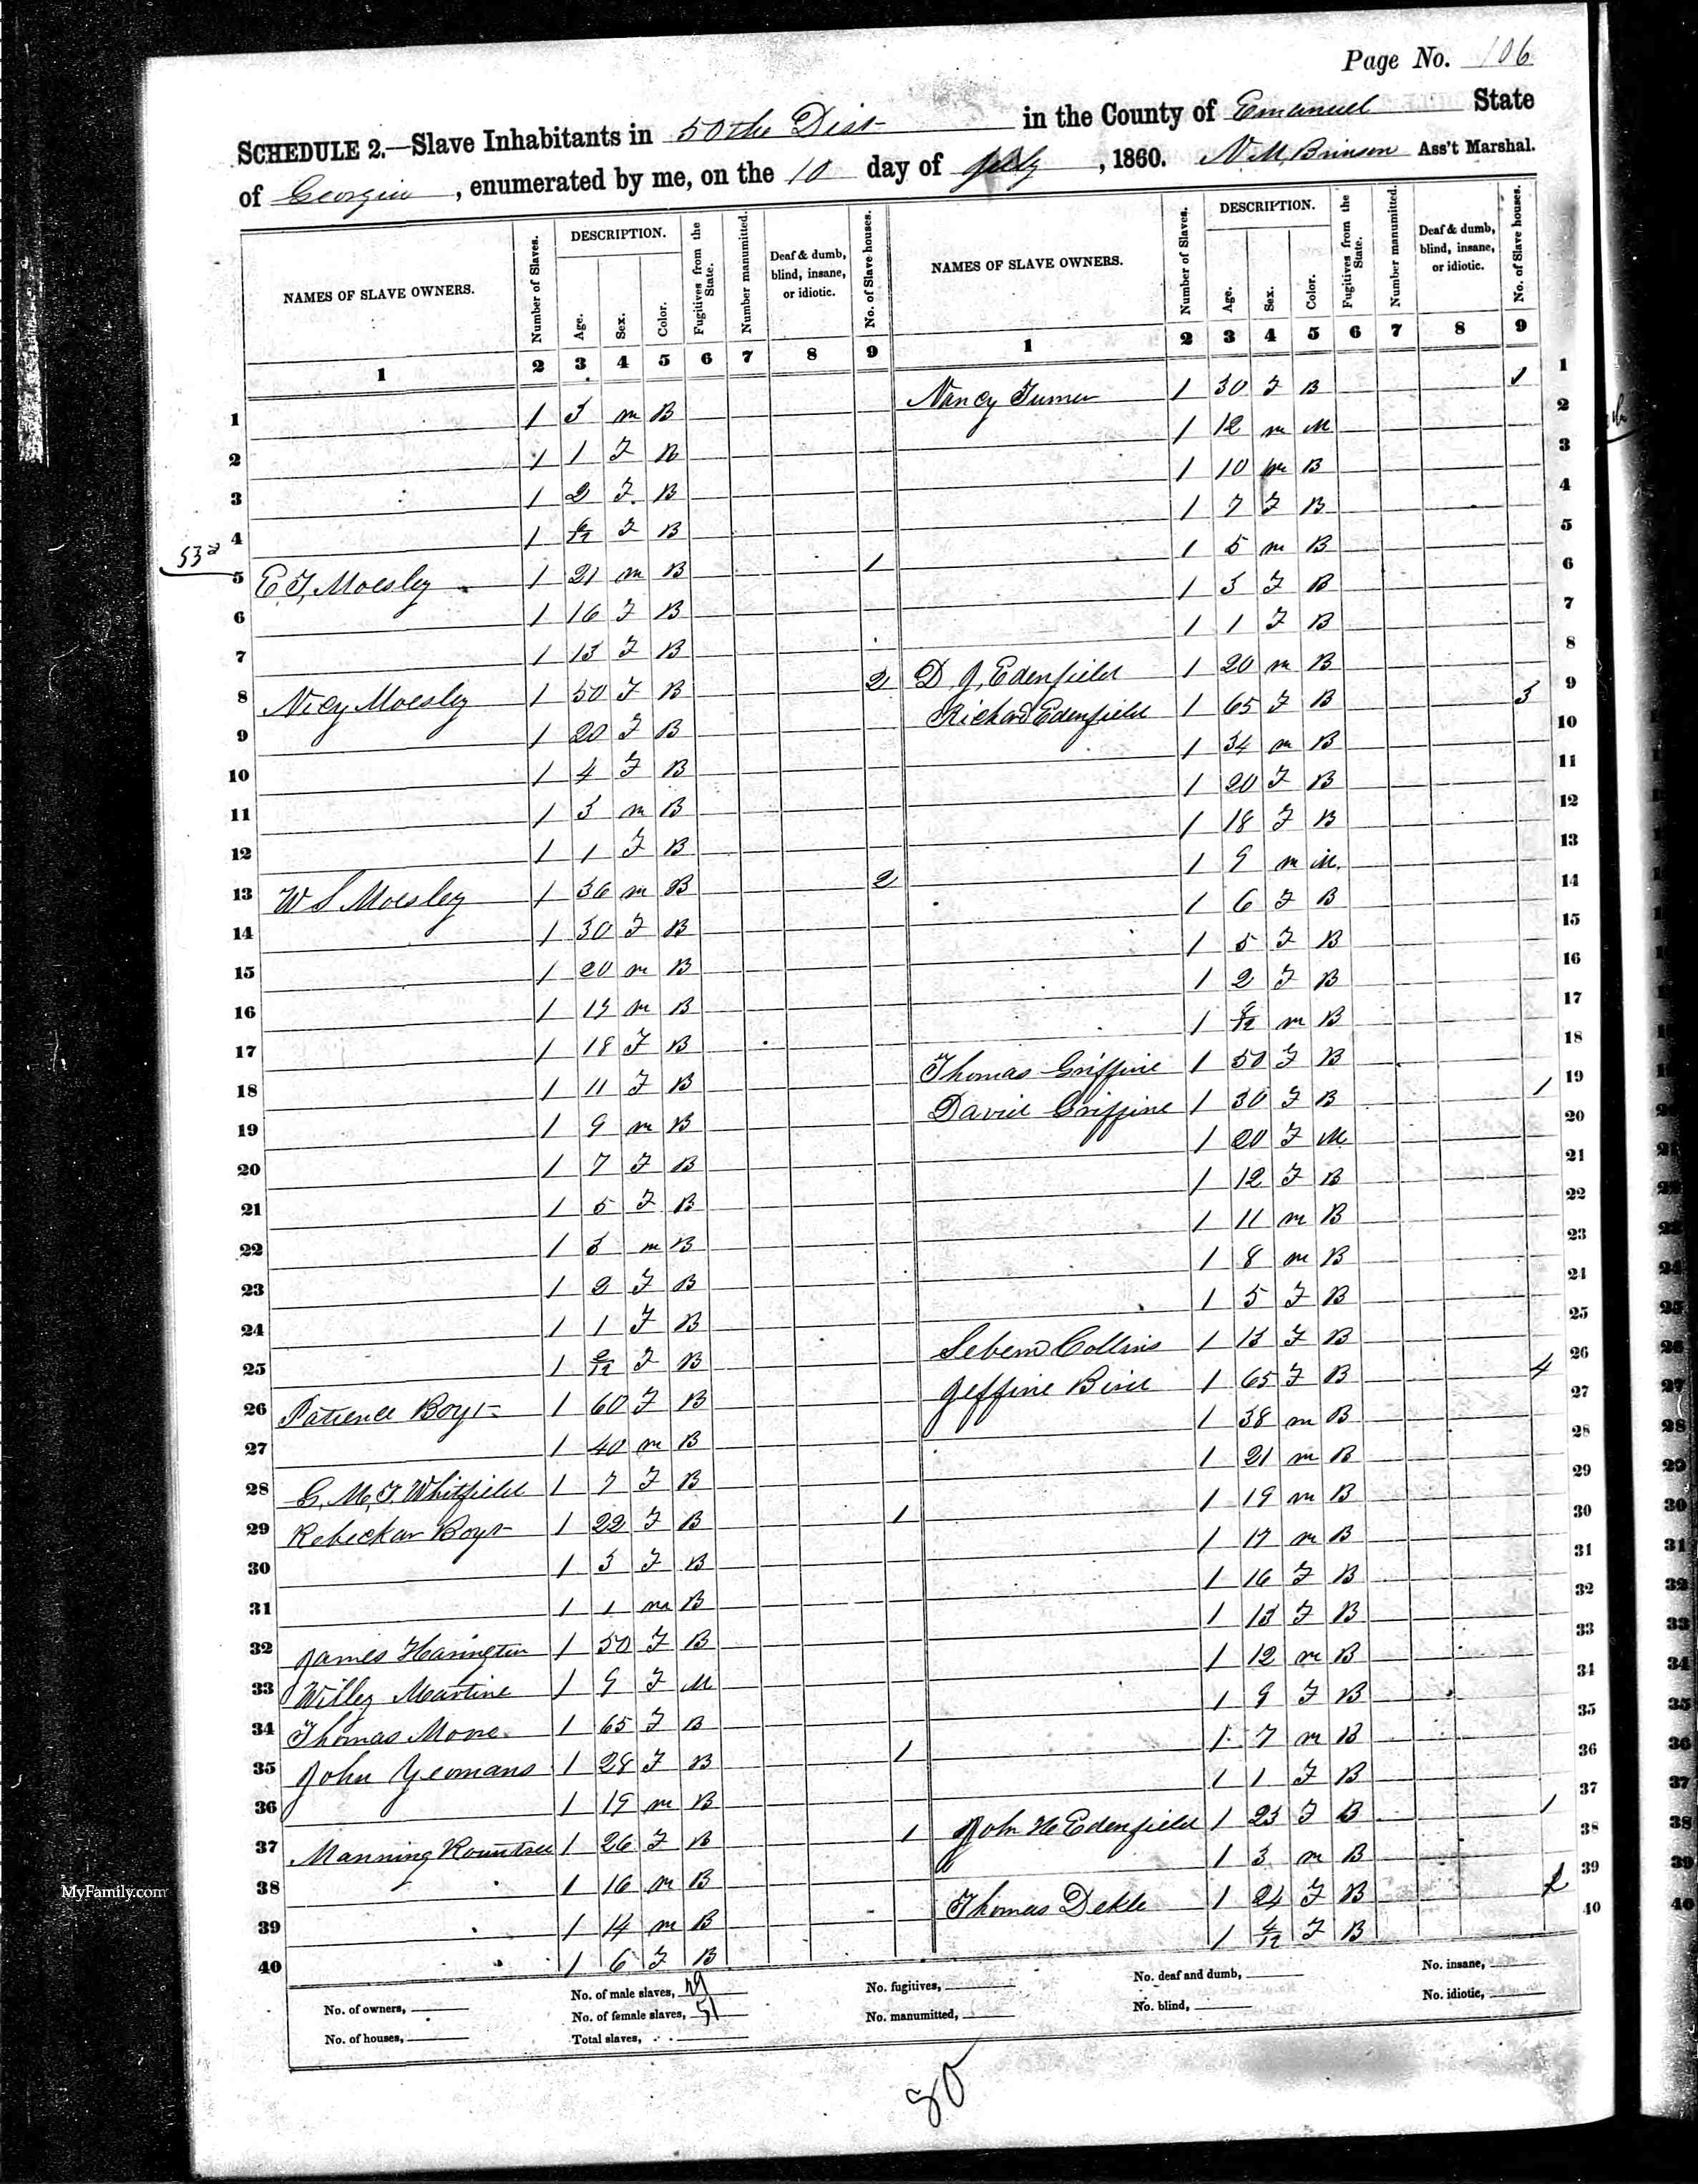 Page No. 106
SCHEDULE 2.—Slave Inhabitants in 50the Dist in the County of Emanuel State
of Georgia, enumerated by me, on the 10 day of July, 1860. N M, Brinson Ass't Marshal.
NAMES OF SLAVE OWNERS. Number of Slaves. DESCRIPTION. Age. Sex. Color. Fugitives from the State. Number manumitted. Deaf & dumb, blind, insane, or idiotic. No. of Slave houses.
1 2 3 4 5 6 7 8 9
1 1 3 m B
2 1 1 F B
3 1 2 F B
4 1 F B
5 E, T, Moesley 1 21 m B 1
6 1 16 F B
7 1 13 F B
8 Nicy Moesley 1 50 F B 2
9 1 20 F B
10 1 4 F B
11 1 3 m B
12 1 1 F B
13 W S Moesley 1 36 m B 2
14 1 30 F B
15 1 20 m B
16 1 m B
17 1 18 F B
18 1 11 F B
19 1 9 m B
20 1 7 F B
21 1 5 F B
22 1 3 m B
23 1 2 F B
24 1 1 F B
25 1 F B
26 Patience Boyt 1 60 F B
27 1 40 m B
28 G, M, T, Whitfield 1 7 F B
29 Rebeckar Boyt 1 22 F B 1
30 1 3 F B
31 1 1 m B
32 James Harington 1 50 F B
33 Willey Martine 1 9 F M
34 Thomas Mone 1 65 F B
35 John Yeomans 1 28 F B 1
36 1 19 m B
37 Manning Rountree 1 26 F B 1
38 1 16 m B
39 1 14 m B
40 1 6 F B
NAMES OF SLAVE OWNERS. Number of Slaves. DESCRIPTION. Age. Sex. Color. Fugitives from the State. Number manumitted. Deaf & dumb, blind, insane, or idiotic. No. of Slave houses.
1 2 3 4 5 6 7 8 9
Nancy Turner 1 30 F B 1 1
1 12 m M 2
1 10 m B 3
1 7 F B 4
1 5 m B 5
1 3 F B 6
1 1 F B 7
D J, Edenfield 1 20 m B 8
Richard Edenfield 1 65 F B 3 9
1 34 m B 10
1 20 F B 11
1 18 F B 12
1 9 m M. 13
1 6 F B 14
1 5 F B 15
1 2 F B 16
1 m B 17
Thomas Griffine 1 50 F B 18
David Griffine 1 30 F B 1 19
1 20 F M 20
1 12 F B 21
1 11 m B 22
1 8 m B 23
1 5 F B 24
Sebern Collins 1 13 F B 25
Jeffine Bird 1 65 F B 4 26
1 38 m B 27
1 21 m B 28
1 19 m B 29
1 17 m B 30
1 16 F B 31
1 13 F B 32
1 12 m B 33
1 9 F B 34
1 7 m B 35
1 1 F B 36
John H Edenfield 1 23 F B 1 37
1 3 m B 38
Thomas Dekle 1 24 F B 2 39
1 4/12 F B 40
No. of owners, No. of male slaves, 29 No. fugitives, No. deaf and dumb, No. insane,
No. of houses, No. of female slaves, 51 No. manumitted, No. blind, No. idiotic,
Total slaves,
80
MyFamily.com